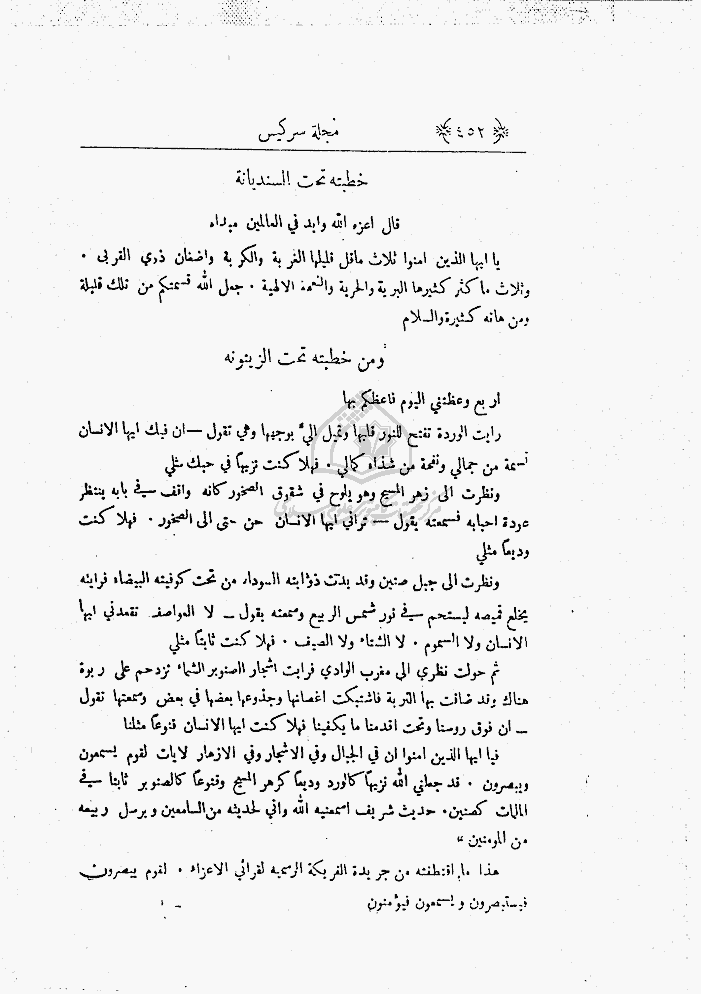 ﴿ ٤٥٢ ﴾ مجلة سركيس
خطبته تحت السنديانة
قال اعزه الله وابد في العالمين مبداه
يا ايها الذين امنوا ثلاث ماقل قليلها الغربة والكربة واضغان ذوي القربى .
وثلاث ماكثر كثيرها البرية والحرية والنعمة الالهية . جعل الله قسمتكم من تلك قليلة
ومن هاته كثيرة والسلام
ومن خطبته تحت الزيتونه
اربع وعظتني اليوم فاعظكم بها
رايت الوردة تفتح للنور قلبها وتميل اليَّ بوجهها وهي تقول — ان فيك ايها الانسان
نسمة من جمالي ونفحة من شذاه كمالي . فهلا كنت نزيهاً في حبك مثلي
ونظرت الى زهر المسيح وهو يلوح في شقوق الصخور كانه واقف في بابه ينتظر
عودة احبابه فسمعته يقول — تراني ايها الانسان حن حتى الى الصخور . فهلا كنت
وديعاً مثلي
ونظرت الى جبل صنين وقد بدت ذوابته السوداء من تحت كوفيته البيضاء فرايته
يخلع قميصه ليستحم في نور شمس الربيع وسمعته يقول — لا العواصف تقعدني ايها
الانسان ولا السموم . لا الشتاء ولا الصيف . فهلا كنت ثابتاً مثلي
ثم حولت نظري الى مغرب الوادي فرايت اشجار الصنوبر الشماء تزدحم على ربوة
هناك وقد ضاقت بها التربة فاشتبكت اغصانها وجذوعها بعضها في بعض وسمعتها تقول
— ان فوق روسنا وتحت اقدمنا ما يكفينا فهلا كنت ايها الانسان قنوعاً مثلنا
فيا ايها الذين امنوا ان في الجبال وفي الاشجار وفي الازهار لايات لقوم يسمعون
ويبصرون . قد جعلني الله نزيهاً كالورد وديعاً كزهر المسيح وقنوعاً كالصنوبر ثابتا في
المات كصنين . حديث شريف اسمعنيه الله واني لحديثه من السامعين ويرسل ربيعه
من المومنين »
هذا ما اقتطفته من جريدة الفريكة الرسمية لقرائي الاعزاء . لقوم يبصرون
فيستبصرون ويسمعون فيؤمنون